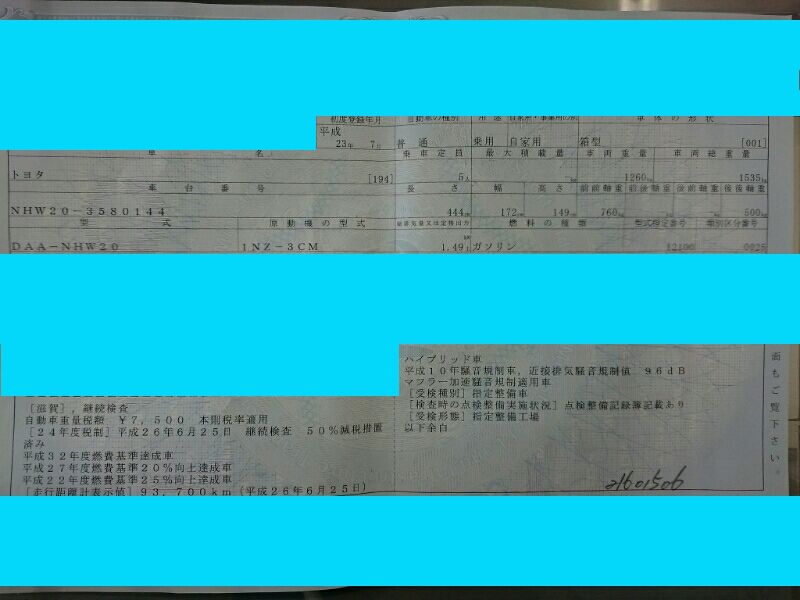 初度登録年月 自動車の種別 用途 自家用・事業用の別 車体の形状
平成
23年 7月 普通 乗用 自家用 箱型 [001]
車名 乗車定員 最大積載量 車両重量 車両総重量
トヨタ [194] 5人 kg 1260kg 1535kg
車台番号 長さ 幅 高さ 前前軸重 前後軸重 後前軸重 後後軸重
NHW20-3580144 444cm 172cm 149cm 760kg -kg -kg 500kg
型式 原動機の型式 総排気量又は定格出力 燃料の種類 型式指定番号 類別区分番号
DAA-NHW20 1NZ-3CM 1.49L ガソリン 12100 0025
ハイブリッド車
平成10年騒音規制車,近接排気騒音規制値 96dB
マフラー加速騒音規制適用車
[受検種別]指定整備車
[検査時の点検整備実施状況]点検整備記録簿記載あり
[受検形態]指定整備工場
以下余白
[滋賀],継続検査
自動車重量税額 ¥7,500 本則税率適用
[24年度税制]平成26年6月25日 継続検査 50%減税措置
済み
平成32年度燃費基準達成車
平成27年度燃費基準20%向上達成車
平成22年度燃費基準25%向上達成車
[走行距離計表示値]93,700km(平成26年6月25日)
面もご覧下さい。